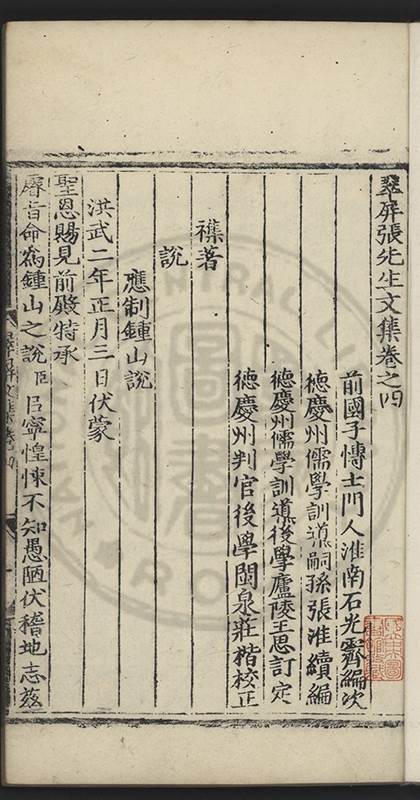 翠屏張先生文集卷之四
前國子博士門人淮南石光霽編次
德慶州儒學訓導嗣孫張淮續編
德慶州儒學訓導後學廬陵王思訂定
德慶州判官後學閩泉莊楷校正
襍著
說
應制鍾山說
洪武二年正月三日伏蒙
聖恩賜見前殿特承
睿旨命爲鍾山之說臣呂寧惶悚不知愚陋伏稽地志茲